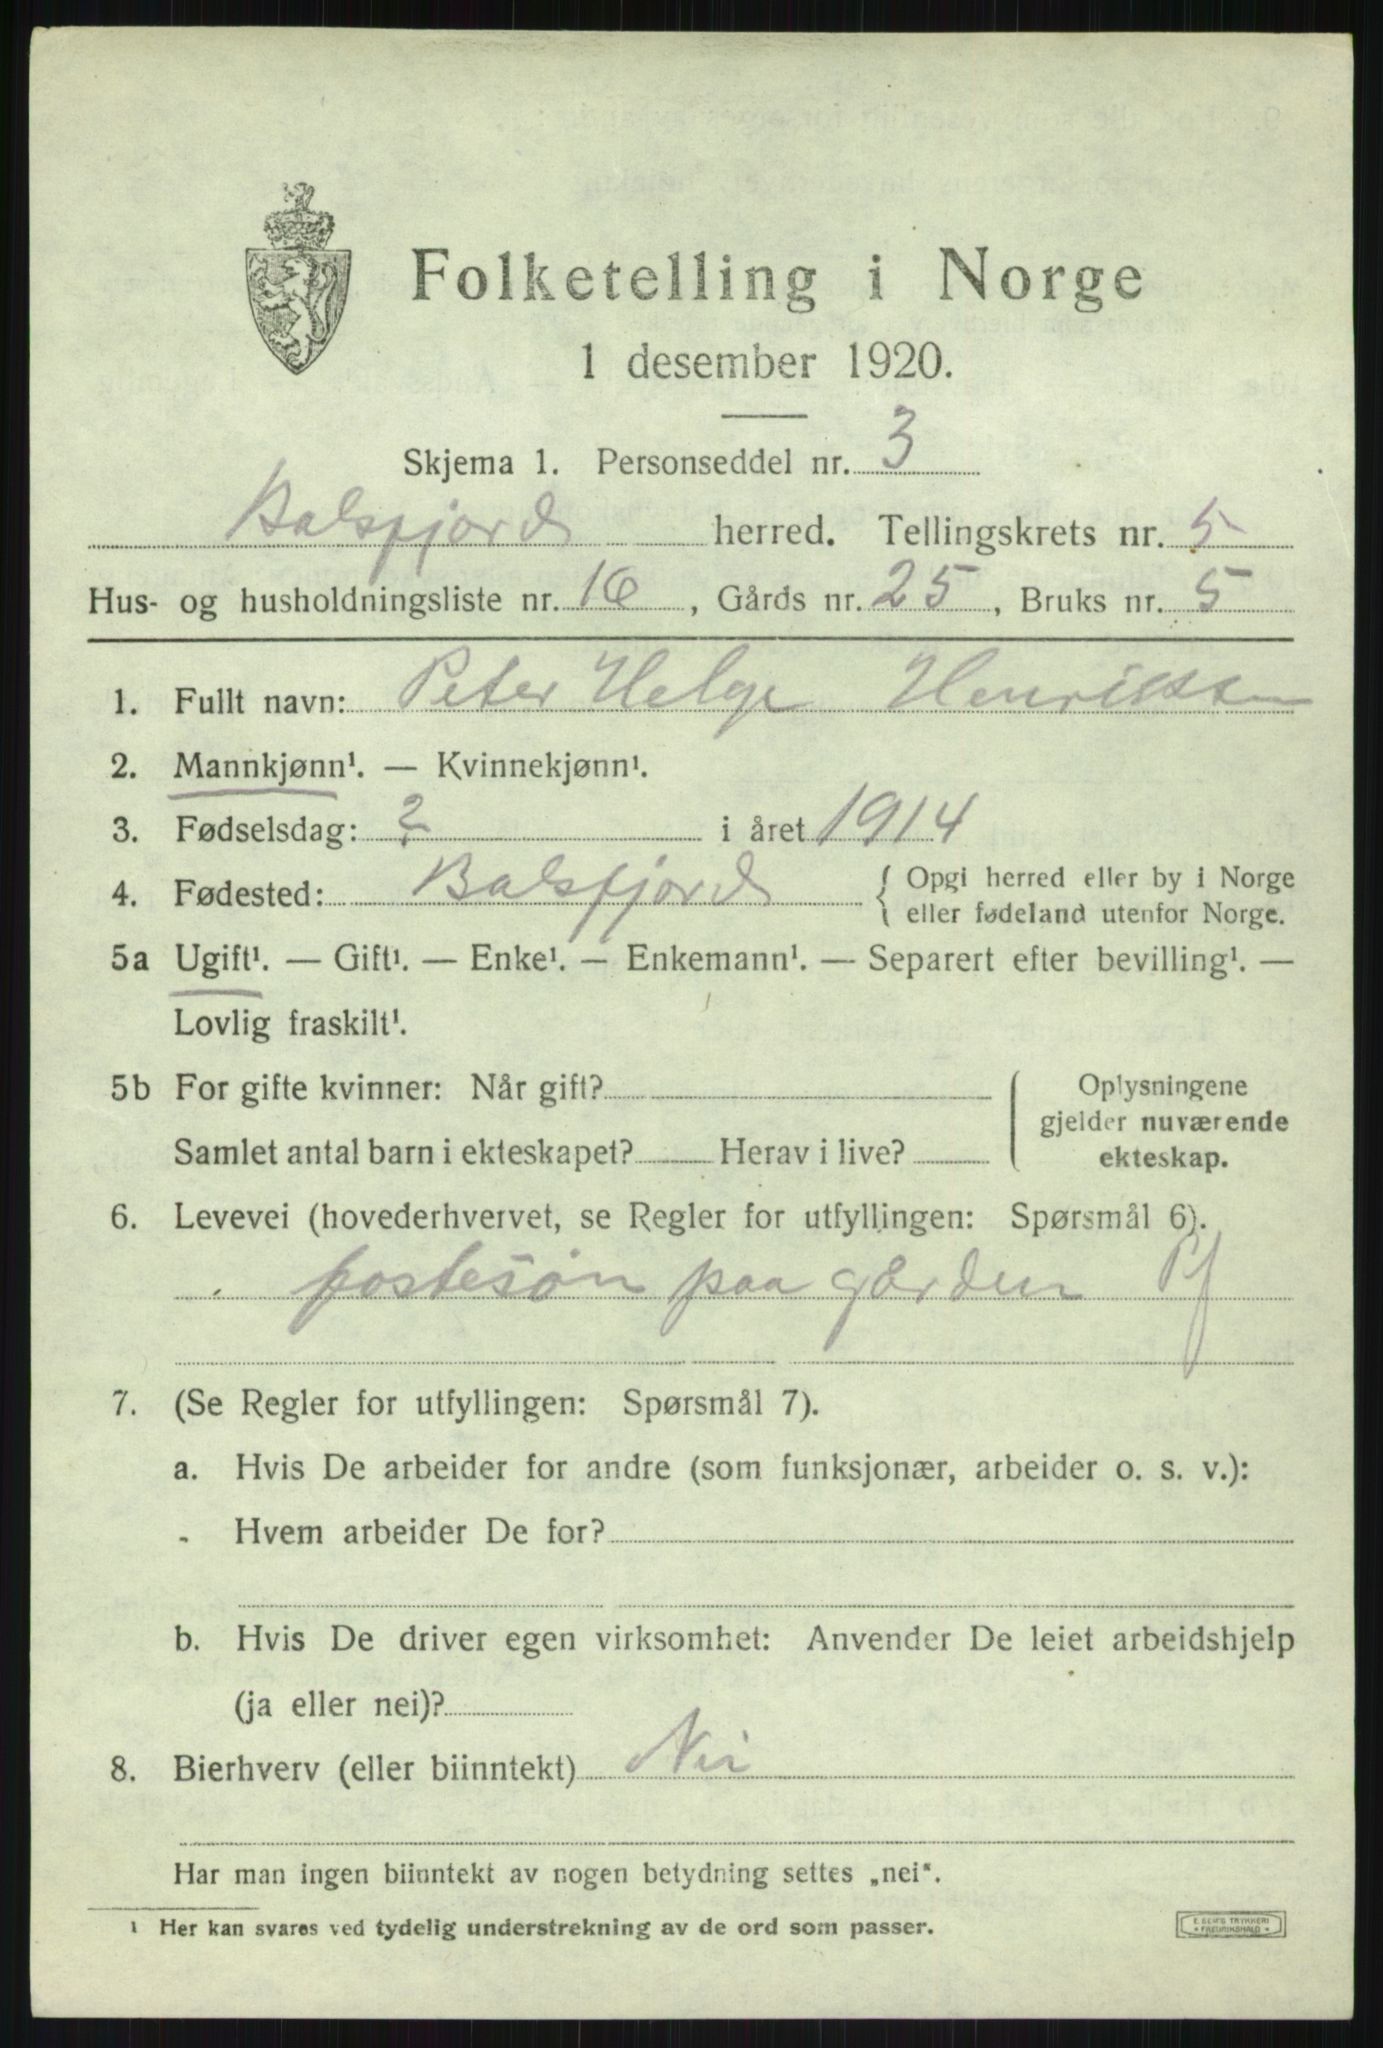 Folketelling i Norge
1 desember 1920.
Skjema 1. Personseddel nr. 3
Balsfjord herred. Tellingskrets nr. 5
Hus- og husholdningsliste nr. 16, Gårds nr. 25, Bruks nr. 5
1. Fullt navn: Peter Helge Henriksen
2. Mannkjønn¹. — Kvinnekjønn¹.
3. Fødselsdag: ? i året 1914
4. Fødested: Balsfjord { Opgi herred eller by i Norge
eller fødeland utenfor Norge.
5a Ugift¹. — Gift¹. — Enke¹. — Enkemann¹. — Separert efter bevilling¹. —
Lovlig fraskilt¹.
5b For gifte kvinner: Når gift? ( Oplysningene
gjelder nuværende
Samlet antal barn i ekteskapet? Herav i live? ekteskap.
6. Levevei (hovederhvervet, se Regler for utfyllingen: Spørsmål 6).
fostesøn paa gården Pf
7. (Se Regler for utfyllingen: Spørsmål 7).
a. Hvis De arbeider for andre (som funksjonær, arbeider o. s. v.):
Hvem arbeider De for?
b. Hvis De driver egen virksomhet: Anvender De leiet arbeidshjelp
(ja eller nei)?
8. Bierhverv (eller biinntekt) Nei
Har man ingen biinntekt av nogen betydning settes „nei“.
¹ Her kan svares ved tydelig understrekning av de ord som passer.
E. SEM'S TRYKKERI
FREDRIKSHALD